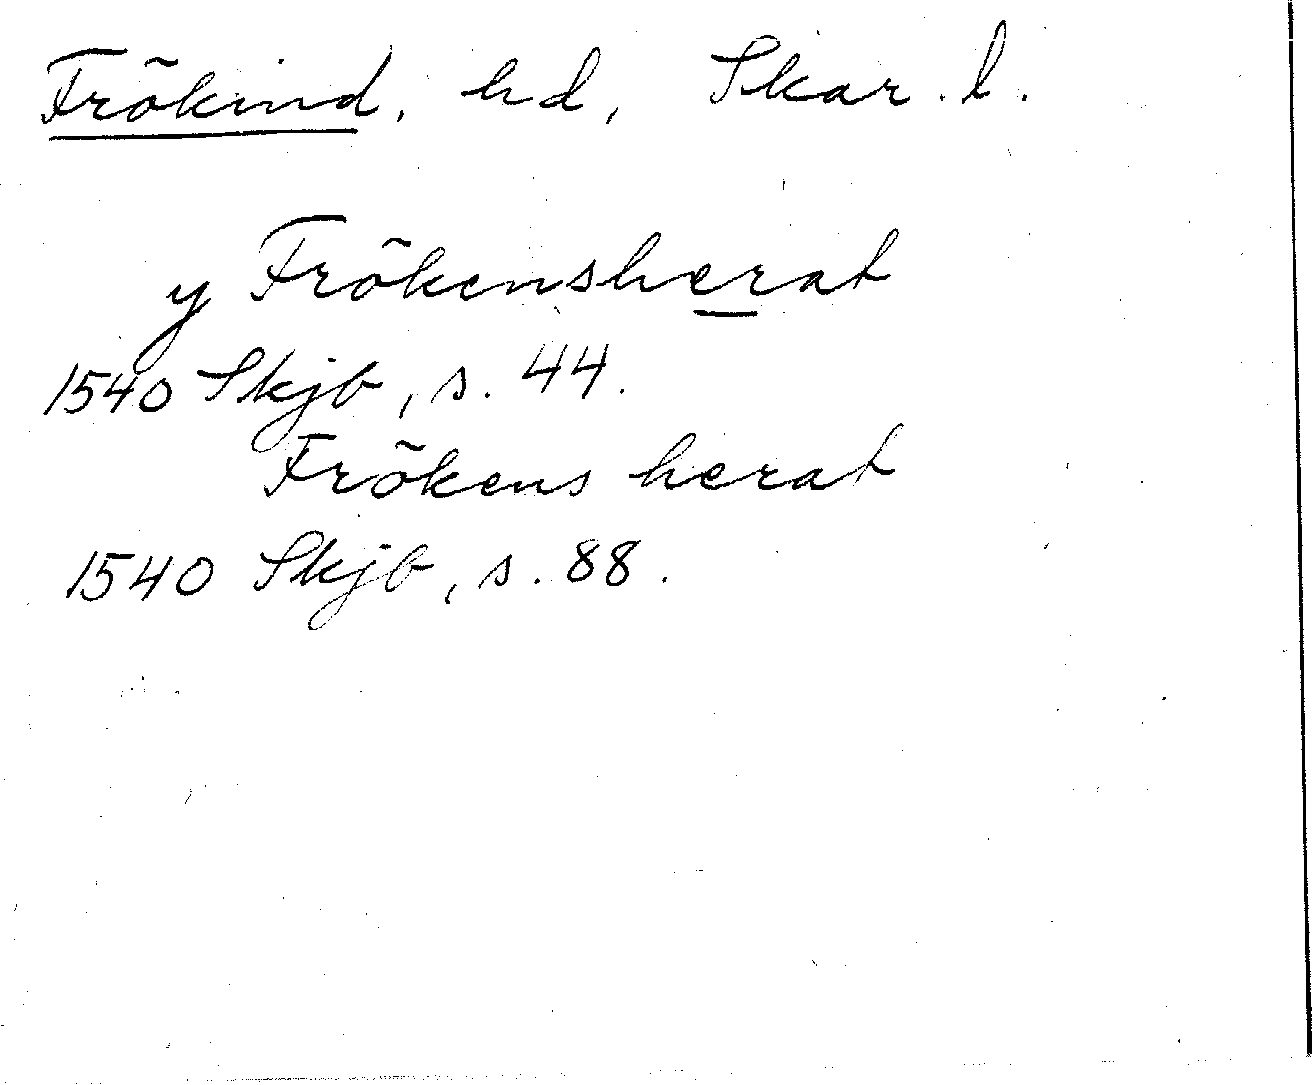 Frökind, hd, Skar. l.
y Frökensherat
1540 Skjb, s. 44.
Frökens herat
1540 Skjb, s. 88.